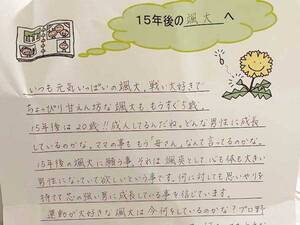 15年後の 颯大 へ
いつも元気いっぱいの颯大。戦い大好きで
ちょっぴり甘えん坊な颯大ももうすぐ5歳。
15年後は20歳!!成人してるんだね。どんな男性に成長
しているのかな。ママの事もも う「母さん」なんて言ってるのかな。
15年後の颯大に願う事、それは 颯爽としていて心も体も大きい
男性になっていて欲しいという事です。何に対しても思いやりを
持てて芯の強い男に成長している事を信じています。
運動が大好きな颯大は今何をしているのかな?プロ野